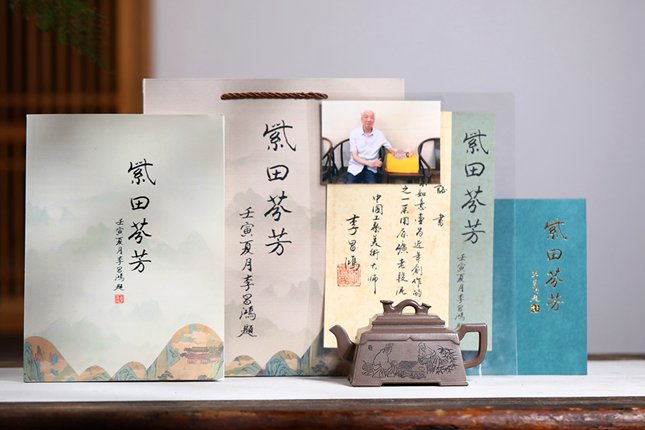 紫田芬芳
壬寅夏月李昌鸿题
紫田芬芳
壬寅夏月李昌鸿題
证书
如意壶为近年创作的
之一
中国工艺美术大师
李昌鸿
紫田芬芳
壬寅夏月李昌鸿题
紫田芬芳